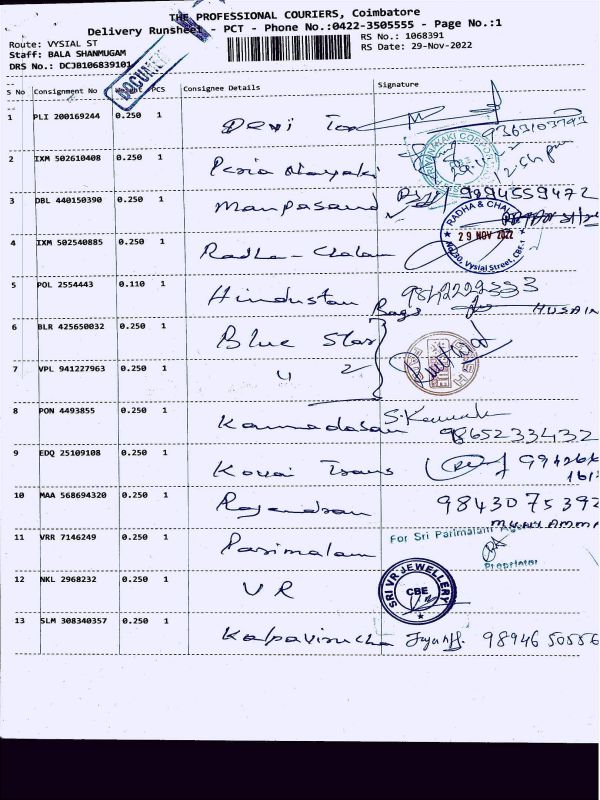 THE PROFESSIONAL COURIERS, Coimbatore
Delivery Runsheet - PCT - Phone No.:0422-3505555 - Page No.:1
Route: VYSIAL ST
RS No.: 1068391
Staff: BALA SHANMUGAM
RS Date: 29-Nov-2022
DRS No.: DCJB106839101
DOCUMENT
S No Consignment No Weight PCS Consignee Details Signature
1 PLI 200169244 0.250 1 Devi
9363103793
2 IXM 502610408 0.250 1 Peria Nayaki
3 DBL 440150390 0.250 1 Manpasand 9894559472
RADHA & CHALAM
29 NOV 2022
Vysial Street, CBE-1
4 IXM 502540885 0.250 1 Radha - Chalam
5 POL 2554443 0.110 1 Hindustan Bags
HUSAIN
6 BLR 425650032 0.250 1 Blue Star
7 VPL 941227963 0.250 1 " 2
8 PON 4493855 0.250 1 Kannadasan
9865233432
9 EDQ 25109108 0.250 1 Kovai Trans
10 MAA 568694320 0.250 1 Rajendran 9843075392
MUNIYAMMA
11 VRR 7146249 0.250 1 Parimalam
For Sri Parimalam
Proprietor
12 NKL 2968232 0.250 1 V R
SRI VR JEWELLERY
CBE
13 SLM 308340357 0.250 1 Kalpavirucha 9894650556